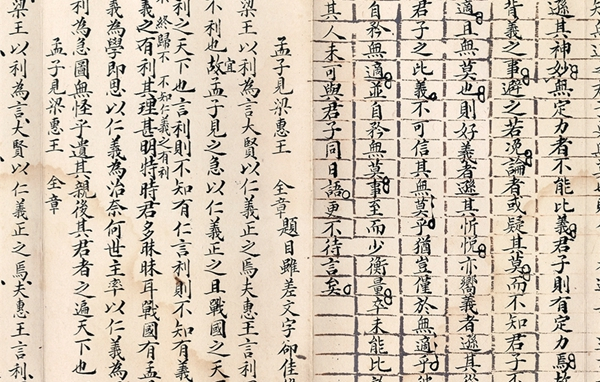 遜其神妙無定力者不能比義君子則有定力焉
背義之事避之若論者或疑其莫而不知君子
適且無莫也則好義者遜其忻悅亦嚮義者遜其
君子之比義不可信其無莫乎猶豈僅於無適乎
自矜無適並自矜無莫事至而少衡量卒未能比
其人未可與君子同日語更不待言矣
孟子見梁惠王 仝章 題目雖差文字卻佳
梁王以利為言大賢以仁義正之焉夫惠王言利
不利也故宜孟子見之急以仁義正之且戰國之天
利之天下也言利則不知有仁言利則不知
終歸不 不知仁義之有利
義之有利其理甚明特時君多昧昧耳戰國有孟
義為學即思以仁義為治奈何世主率以仁義為
利為急圖無怪乎遺其親後其君者之遍天下也
孟子見梁惠王 仝章
梁王以利為言大賢以仁義正之焉夫惠王言利